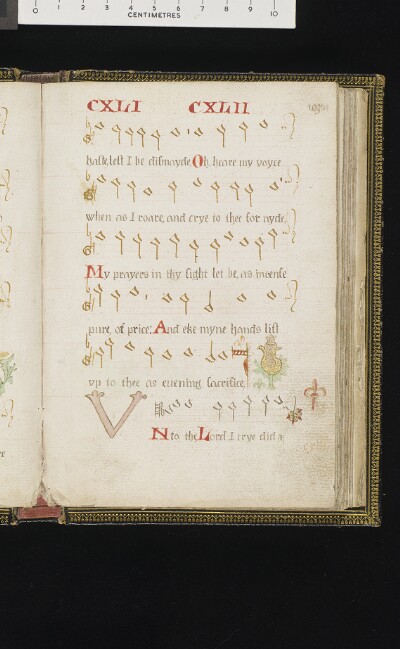 0 1 2 3 4 5 6 7 8 9 10
CENTIMETRES
CXLI CXLII
hast, lest I be dismayde, Oh heare my voyce
when as I roare, and crye to thee for ayde.
My prayers in thy sight let be, as incense
pure, of price: And eke myne hands lift
vp to thee as euening sacrifice.
V
N to the Lord I crye did